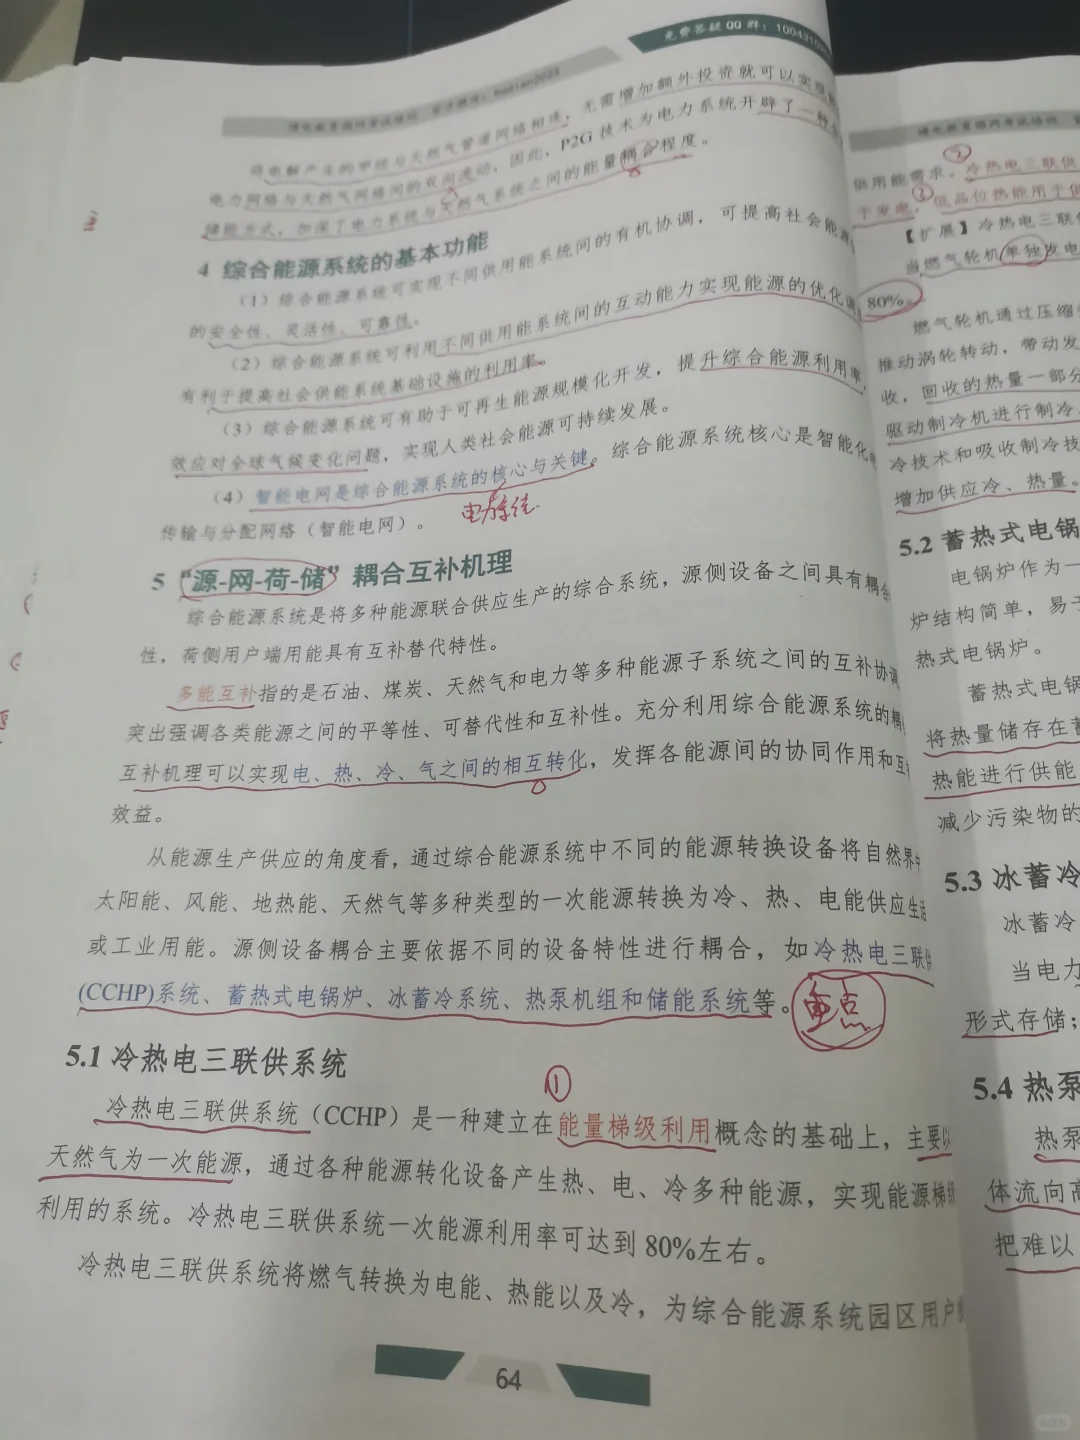 免费答疑 QQ 群：100431
将电解产生的甲烷与天然气管道网络相连，无需增加额外投资就可以实现
电力网络与天然气网络间的双向流动，因此，P2G 技术为电力系统开辟了一种
储能方式，加深了电力系统与天然气系统之间的能量耦合程度。
4 综合能源系统的基本功能
（1）综合能源系统可实现不同供用能系统间的有机协调，可提高社会能源
的安全性、灵活性、可靠性。
（2）综合能源系统可利用不同供用能系统间的互动能力实现能源的优化调
有利于提高社会供能系统基础设施的利用率。
（3）综合能源系统可有助于可再生能源规模化开发，提升综合能源利用率，
效应对全球气候变化问题，实现人类社会能源可持续发展。
（4）智能电网是综合能源系统的核心与关键。综合能源系统核心是智能化
传输与分配网络（智能电网）。
电力系统
5 “源-网-荷-储”耦合互补机理
综合能源系统是将多种能源联合供应生产的综合系统，源侧设备之间具有耦合
性，荷侧用户端用能具有互补替代特性。
多能互补指的是石油、煤炭、天然气和电力等多种能源子系统之间的互补协调
突出强调各类能源之间的平等性、可替代性和互补性。充分利用综合能源系统的耦
互补机理可以实现电、热、冷、气之间的相互转化，发挥各能源间的协同作用和互
效益。
从能源生产供应的角度看，通过综合能源系统中不同的能源转换设备将自然界中
太阳能、风能、地热能、天然气等多种类型的一次能源转换为冷、热、电能供应生活
或工业用能。源侧设备耦合主要依据不同的设备特性进行耦合，如冷热电三联供
(CCHP)系统、蓄热式电锅炉、冰蓄冷系统、热泵机组和储能系统等。
重点
5.1 冷热电三联供系统
①
冷热电三联供系统（CCHP）是一种建立在能量梯级利用概念的基础上，主要以
天然气为一次能源，通过各种能源转化设备产生热、电、冷多种能源，实现能源梯级
利用的系统。冷热电三联供系统一次能源利用率可达到 80%左右。
冷热电三联供系统将燃气转换为电能、热能以及冷，为综合能源系统园区用户
64
②
供用能需求。冷热电三联供
于发电，低品位热能用于供
【扩展】冷热电三联供
当燃气轮机单独发电
80%。
燃气轮机通过压缩
推动涡轮转动，带动发
收，回收的热量一部分
驱动制冷机进行制冷
冷技术和吸收制冷技
增加供应冷、热量。
5.2 蓄热式电锅
电锅炉作为一
炉结构简单，易于
热式电锅炉。
蓄热式电锅
将热量储存在蓄
热能进行供能
减少污染物的
5.3 冰蓄冷
冰蓄冷
当电力
形式存储；
5.4 热泵
热泵
体流向高
把难以